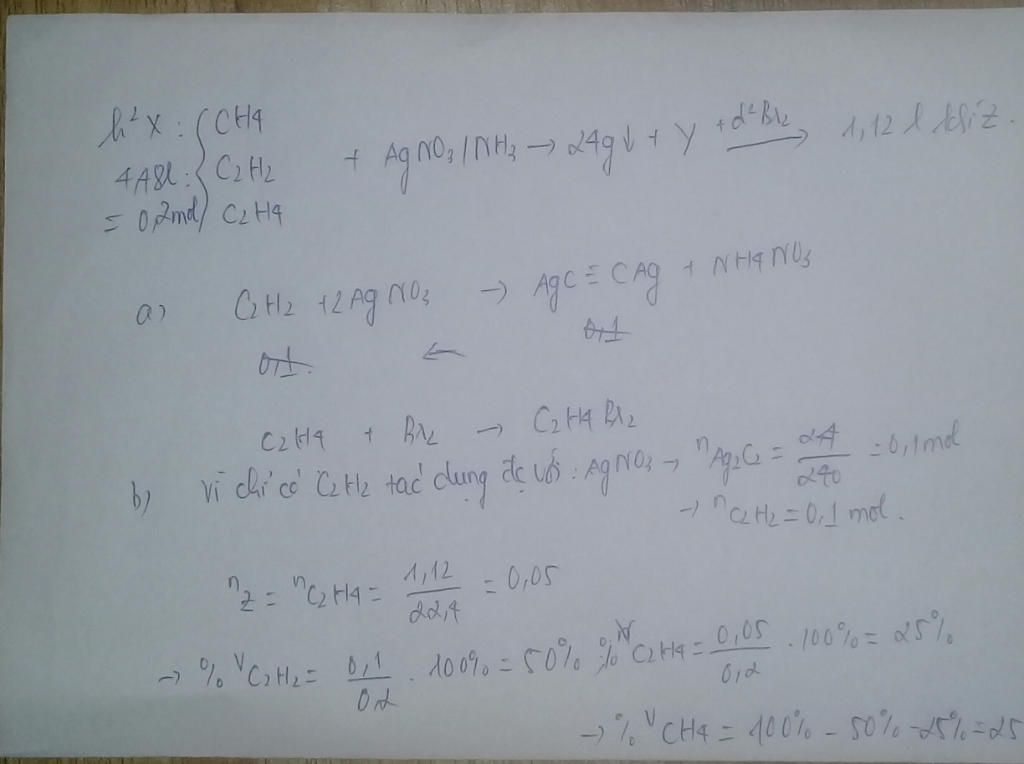 h² X : { CH4
4,48l : C2H2 + AgNO3/NH3 → 24g↓ + Y + d² Br2 → 1,12 l khí Z.
= 0,2mol C2H4
a) C2H2 + 2AgNO3 → AgC ≡ CAg + NH4NO3
0,1 ← 0,1
C2H4 + Br2 → C2H4Br2
b) Vì chỉ có C2H2 tác dụng đc với : AgNO3 → nAg2C2 = 24/240 = 0,1mol
→ nC2H2 = 0,1 mol.
nZ = nC2H4 = 1,12/22,4 = 0,05
→ %VC2H2 = 0,1/0,2 . 100% = 50% %VC2H4 = 0,05/0,2 . 100% = 25%
→ %VCH4 = 100% - 50% - 25% = 25